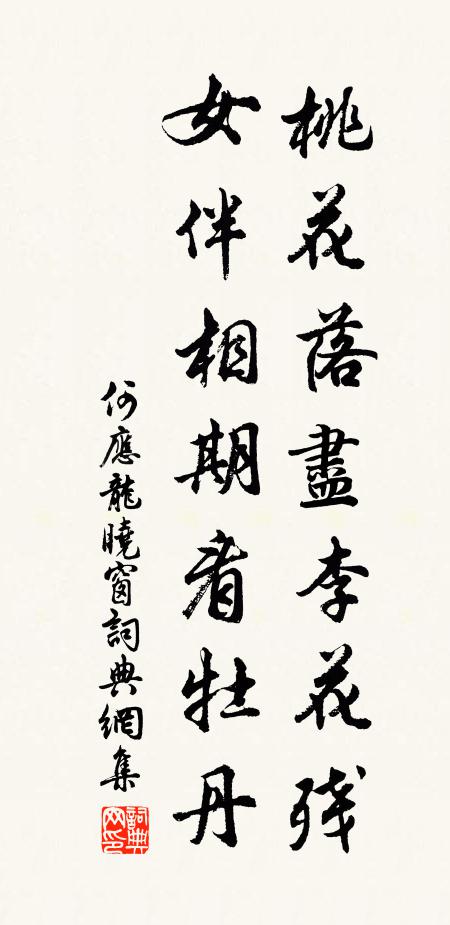 桃花落盡李花殘
女伴相期看牡丹
何應龍曉窗詞典網集
詞典网印